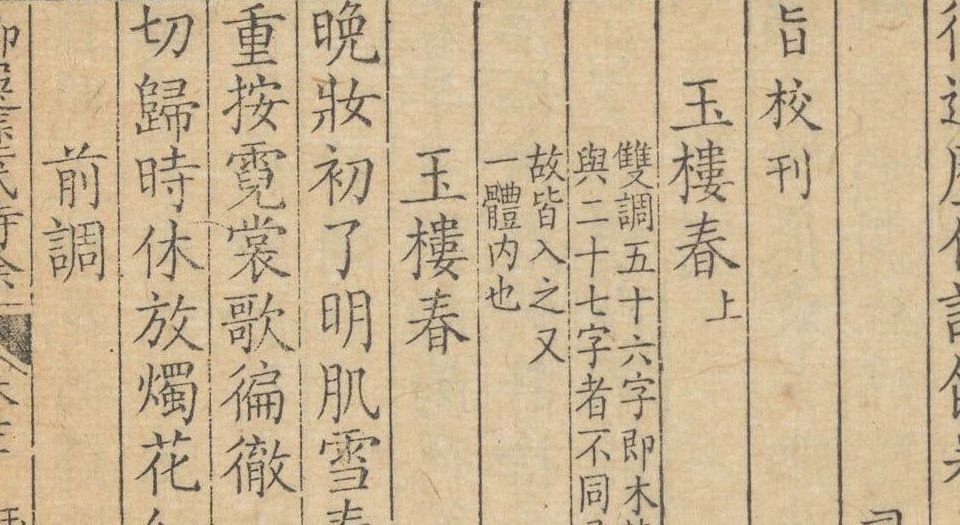 旨校刊
玉樓春上
雙調五十六字即木
與二十七字者不同
故皆入之又
一體内也
玉樓春
晚妝初了明肌雪
重按霓裳歌徧徹
切歸時休放燭花
前調